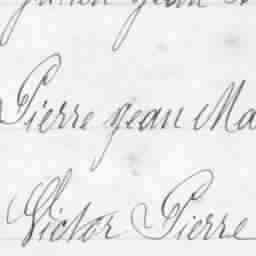 Jean
Pierre Jean Ma
Victor Pierre